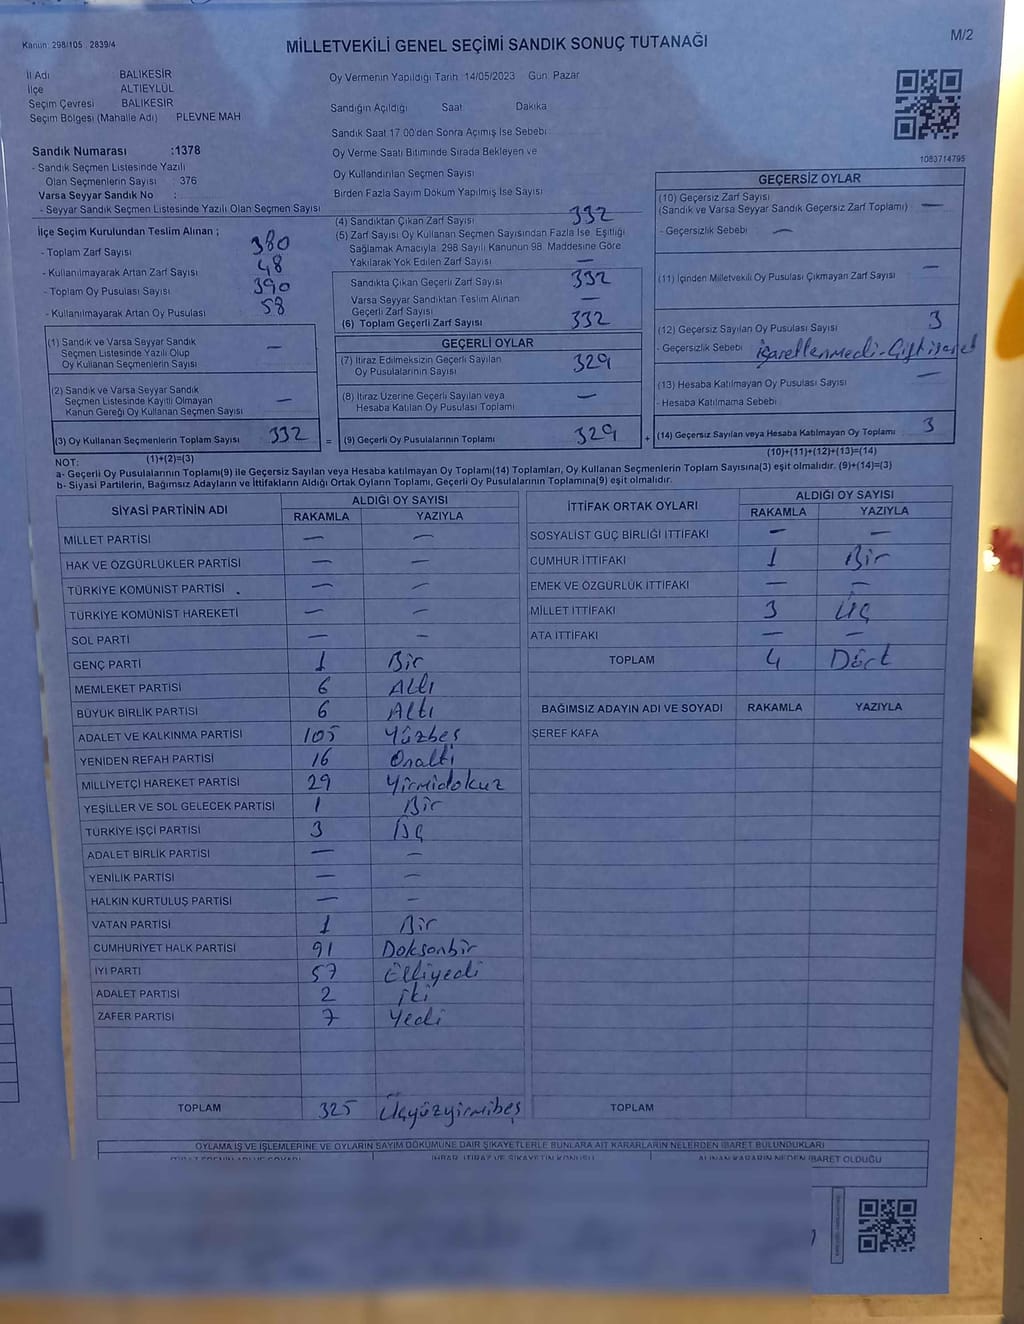 Kanun: 298/105 2839/4
MİLLETVEKİLİ GENEL SEÇİMİ SANDIK SONUÇ TUTANAĞI
M/2
İl Adı BALIKESİR
İlçe ALTIEYLÜL
Seçim Çevresi BALIKESİR
Seçim Bölgesi (Mahalle Adı) PLEVNE MAH
Sandık Numarası :1378
- Sandık Seçmen Listesinde Yazılı
Olan Seçmenlerin Sayısı : 376
Varsa Seyyar Sandık No :
- Seyyar Sandık Seçmen Listesinde Yazılı Olan Seçmen Sayısı
Oy Vermenin Yapıldığı Tarih 14/05/2023 Gün Pazar
Sandığın Açıldığı Saat Dakika
Sandık Saat 17.00'den Sonra Açımış İse Sebebi
Oy Verme Saati Bitiminde Sırada Bekleyen ve
Oy Kullandırılan Seçmen Sayısı
Birden Fazla Sayım Döküm Yapılmış İse Sayısı
1083714795
İlçe Seçim Kurulundan Teslim Alınan ;
- Toplam Zarf Sayısı 380
- Kullanılmayarak Artan Zarf Sayısı 48
- Toplam Oy Pusulası Sayısı 390
- Kullanılmayarak Artan Oy Pusulası 58
(1) Sandık ve Varsa Seyyar Sandık
Seçmen Listesinde Yazılı Olup
Oy Kullanan Seçmenlerin Sayısı —
(2) Sandık ve Varsa Seyyar Sandık
Seçmen Listesinde Kayıtlı Olmayan
Kanun Gereği Oy Kullanan Seçmen Sayısı —
(3) Oy Kullanan Seçmenlerin Toplam Sayısı 332
(1)+(2)=(3)
(4) Sandıktan Çıkan Zarf Sayısı 332
(5) Zarf Sayısı Oy Kullanan Seçmen Sayısından Fazla İse, Eşitliği
Sağlamak Amacıyla 298 Sayılı Kanunun 98. Maddesine Göre
Yakılarak Yok Edilen Zarf Sayısı —
Sandıkta Çıkan Geçerli Zarf Sayısı 332
Varsa Seyyar Sandıktan Teslim Alınan
Geçerli Zarf Sayısı —
(6) Toplam Geçerli Zarf Sayısı 332
GEÇERLİ OYLAR
(7) İtiraz Edilmeksizin Geçerli Sayılan
Oy Pusulalarının Sayısı 329
(8) İtiraz Üzerine Geçerli Sayılan veya
Hesaba Katılan Oy Pusulası Toplamı —
= (9) Geçerli Oy Pusulalarının Toplamı 329
GEÇERSİZ OYLAR
(10) Geçersiz Zarf Sayısı
(Sandık ve Varsa Seyyar Sandık Geçersiz Zarf Toplamı) —
- Geçersizlik Sebebi —
(11) İçinden Milletvekili Oy Pusulası Çıkmayan Zarf Sayısı —
(12) Geçersiz Sayılan Oy Pusulası Sayısı 3
- Geçersizlik Sebebi işaretlenmedi-Çift işaret
(13) Hesaba Katılmayan Oy Pusulası Sayısı —
- Hesaba Katılmama Sebebi
+ (14) Geçersiz Sayılan veya Hesaba Katılmayan Oy Toplamı 3
(10)+(11)+(12)+(13)=(14)
NOT:
a- Geçerli Oy Pusulalarının Toplamı(9) ile Geçersiz Sayılan veya Hesaba katılmayan Oy Toplamı(14) Toplamları, Oy Kullanan Seçmenlerin Toplam Sayısına(3) eşit olmalıdır. (9)+(14)=(3)
b- Siyasi Partilerin, Bağımsız Adayların ve İttifakların Aldığı Ortak Oyların Toplamı, Geçerli Oy Pusulalarının Toplamına(9) eşit olmalıdır.
SİYASİ PARTİNİN ADI ALDIĞI OY SAYISI
RAKAMLA YAZIYLA
MİLLET PARTİSİ — —
HAK VE ÖZGÜRLÜKLER PARTİSİ — —
TÜRKİYE KOMÜNİST PARTİSİ — —
TÜRKİYE KOMÜNİST HAREKETİ — —
SOL PARTİ — —
GENÇ PARTİ 1 Bir
MEMLEKET PARTİSİ 6 Altı
BÜYÜK BİRLİK PARTİSİ 6 Altı
ADALET VE KALKINMA PARTİSİ 105 Yüzbeş
YENİDEN REFAH PARTİSİ 16 Onaltı
MİLLİYETÇİ HAREKET PARTİSİ 29 Yirmidokuz
YEŞİLLER VE SOL GELECEK PARTİSİ 1 Bir
TÜRKİYE İŞÇİ PARTİSİ 3 Üç
ADALET BİRLİK PARTİSİ — —
YENİLİK PARTİSİ — —
HALKIN KURTULUŞ PARTİSİ — —
VATAN PARTİSİ 1 Bir
CUMHURİYET HALK PARTİSİ 91 Doksanbir
İYİ PARTİ 57 Elliyedi
ADALET PARTİSİ 2 İki
ZAFER PARTİSİ 7 Yedi
TOPLAM 325 Üçyüzyirmibeş
İTTİFAK ORTAK OYLARI ALDIĞI OY SAYISI
RAKAMLA YAZIYLA
SOSYALİST GÜÇ BİRLİĞİ İTTİFAKI — —
CUMHUR İTTİFAKI 1 Bir
EMEK VE ÖZGÜRLÜK İTTİFAKI — —
MİLLET İTTİFAKI 3 Üç
ATA İTTİFAKI — —
TOPLAM 4 Dört
BAĞIMSIZ ADAYIN ADI VE SOYADI RAKAMLA YAZIYLA
ŞEREF KAFA
TOPLAM
OYLAMA İŞ VE İŞLEMLERİNE VE OYLARIN SAYIM DÖKÜMÜNE DAİR ŞİKAYETLERLE BUNLARA AİT KARARLARIN NELERDEN İBARET BULUNDUKLARI
İHBAR, İTİRAZ VE ŞİKAYETİN KONUSU ALINAN KARARIN NEDEN İBARET OLDUĞU